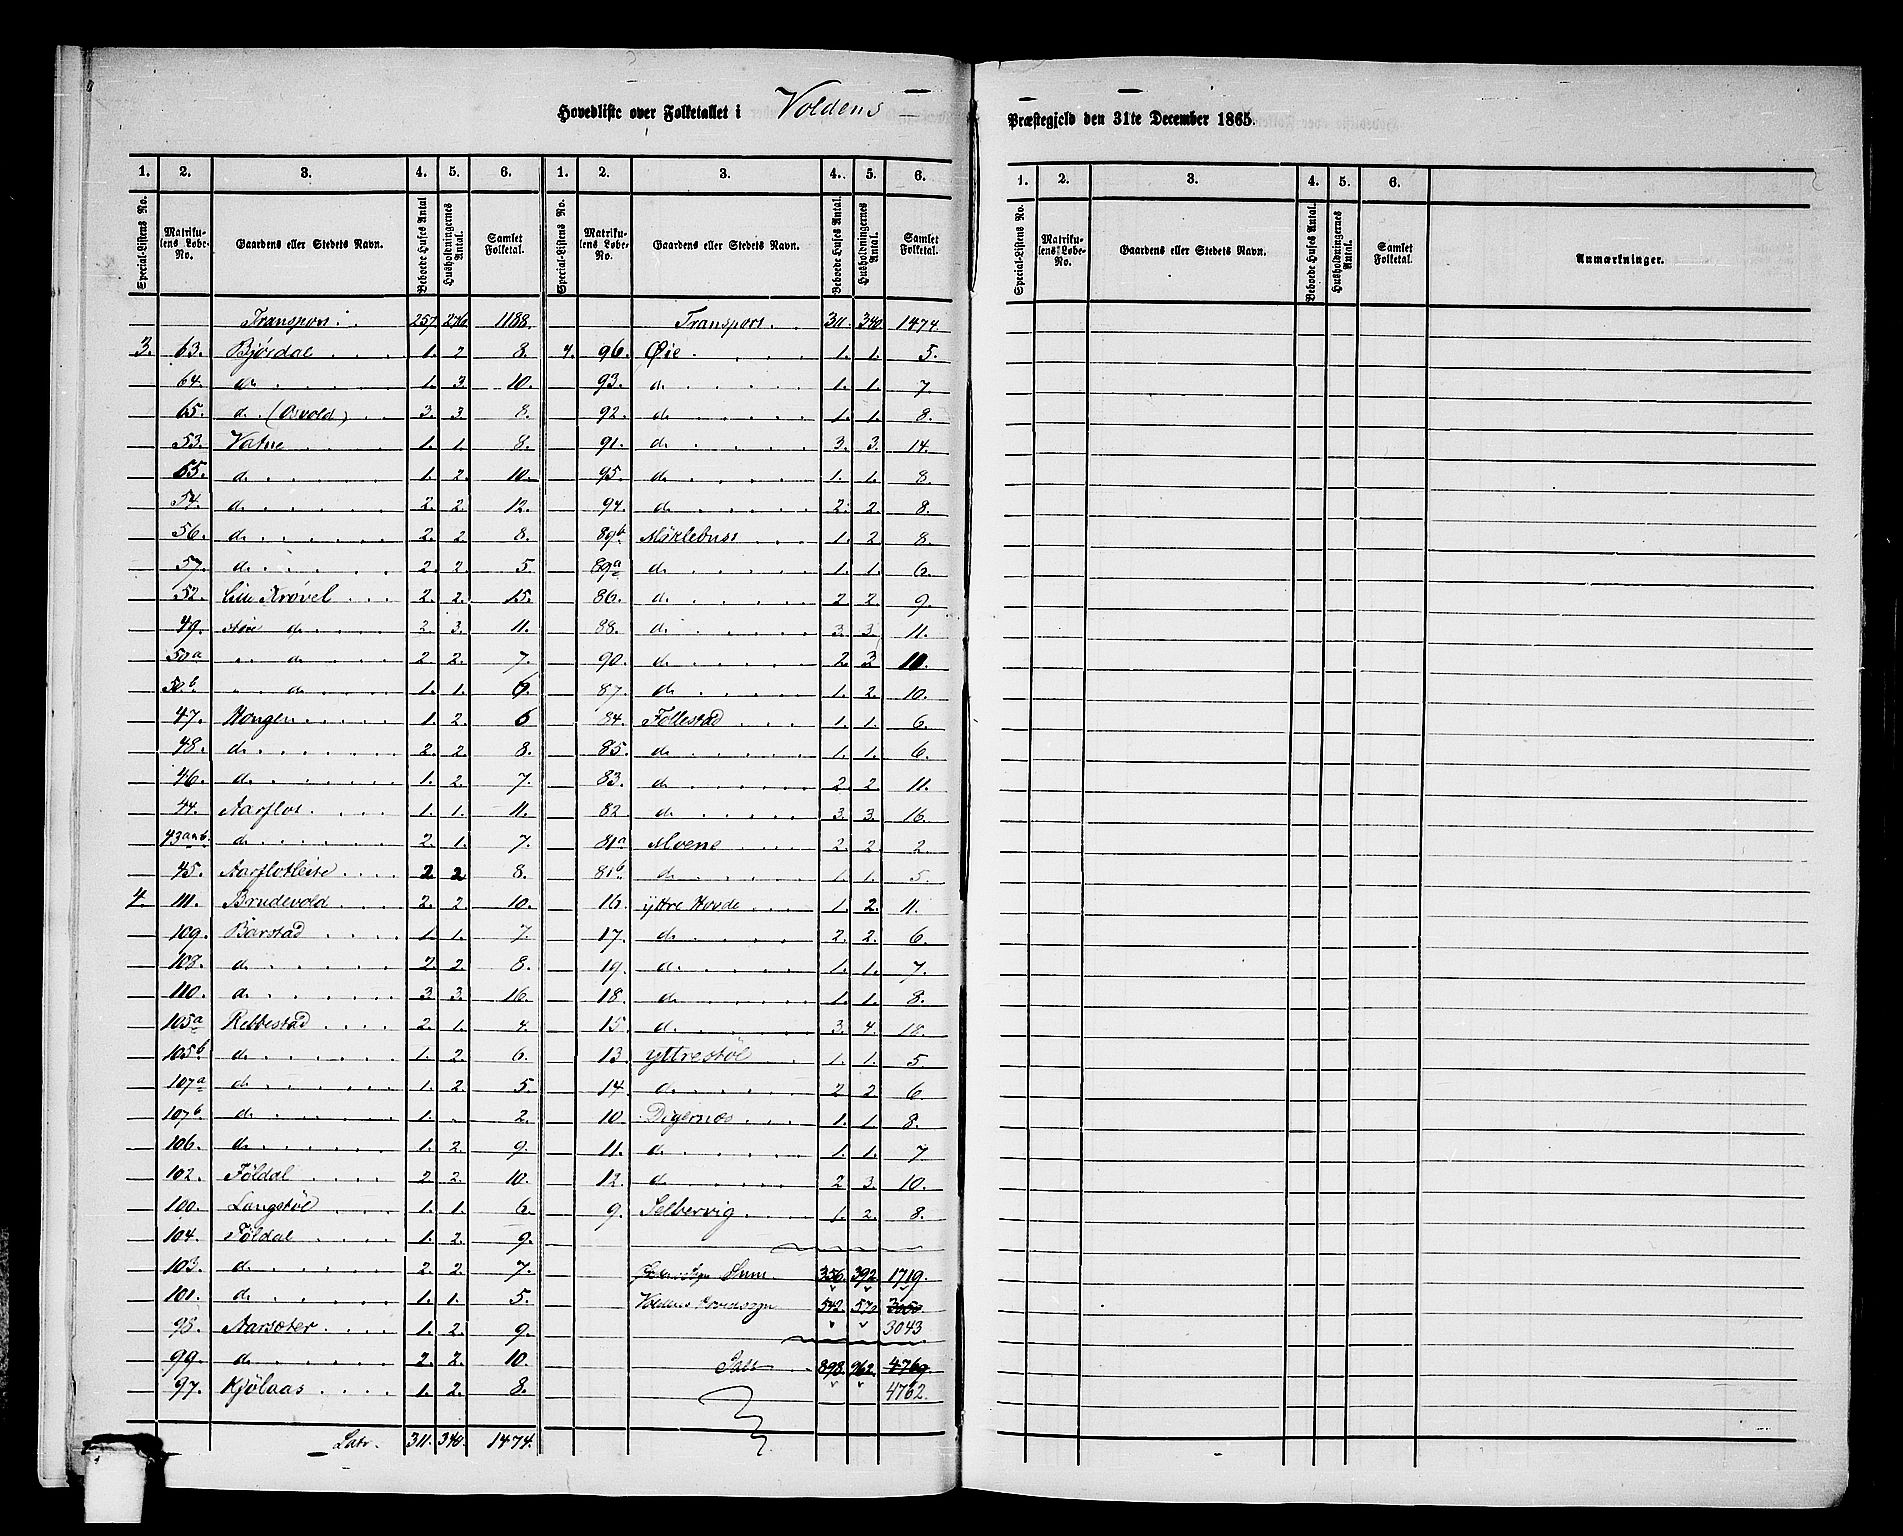 Hovedliste over Folketallet i Voldens Præstegjeld den 31te December 1865.
1. 2. 3. 4. 5. 6. 1. 2. 3. 4. 5. 6.
Special-Listens No. Matrikulens Løbe-No. Gaardens eller Stedets Navn. Beboede Huses Antal Husholdningernes Antal. Samlet Folketal. Special-Listens No. Matrikulens Løbe-No. Gaardens eller Stedets Navn. Beboede Huses Antal. Husholdningernes Antal. Samlet Folketal.
Transport 257 276 1188.
3. 63. Bjørdal 1. 2 8.
64. do 1. 3. 10.
65. do (Osvold) 3. 3. 8.
53. Vatne 1. 1. 8.
55. do 1. 2. 10.
54. do 2. 2. 12.
56. do 2. 2 8.
57. do 2. 2 5.
52. Lille Krøvel 2. 2. 15.
49. Støre do 2. 3. 11.
50a " do 2 2. 7.
50b " do 1. 1. 6.
47. Hougen 1. 2. 6
48. do 2. 2 8.
46. do 1. 2. 7.
44. Aarflot 1. 1. 11.
43a & b. do 2. 1. 7.
45. Aarflotleite 2 2 8.
4. 111. Brudevold 2. 2 10.
109. Barstad 1. 1. 7.
108. do 2. 2 8.
110. do 3. 3. 16.
105a Rebbestad 2. 1. 4.
105b do 1. 2 6.
107a do 1. 2. 5.
107b do 1. . 2.
106. do 1. 2 9.
102. Føldal 2 2. 10.
100. Langstøl 1. 1. 6.
104. Føldal 1. 2. 9.
103. do 2. 2. 7.
101. do 1. 1. 5.
98. Aarsæter 1. 2. 9.
99. do 2. 2. 10.
97. Kjølaas 1. 2. 8.
Latr. 311. 340. 1474.
Transport 311. 340 1474.
4. 96. Øie 1. 1. 5.
93. do 1. 1. 7
92. do 1. 1. 8.
91. do 3. 3. 14.
95. do 1. 1. 8
94. do 2. 2. 8.
89b Møklebust 1. 2 8.
89a do 1. 1. 6.
86. do 2 2. 9.
88. do 3. 3. 11.
90. do 2. 3 10.
87. do 1. 2. 10.
84. Follestad 1. 1. 6.
85. do 1. 1. 6.
83. do 2 2 11.
82 do 3. 3. 16.
81a Moene 2 2 2.
81b do 1. 1. 5.
16. yttre Hovde 1. 2. 11.
17. do 2. 2. 6.
19. do 1. 1. 7.
18. do 1. 1. 8.
15. do 3. 4. 18.
13. yttrestøl 1. 1. 5
14. do 2 2. 6
10. Digernæs 1. 1. 8.
11. do 1. 1. 7
12. do 2 3. 10.
9. Selbervig 1. 2. 8.
Sum 356. 392 1719.
Voldens Hovedsogn 542. 570 3050
3043
Ialt 898. 962. 4769
4762.
1. 2. 3. 4. 5. 6.
Special-Listens No. Matrikulens Løbe-No. Gaardens eller Stedets Navn. Beboede Huses Antal. Husholdningernes Antal. Samlet Folketal. Anmærkninger.